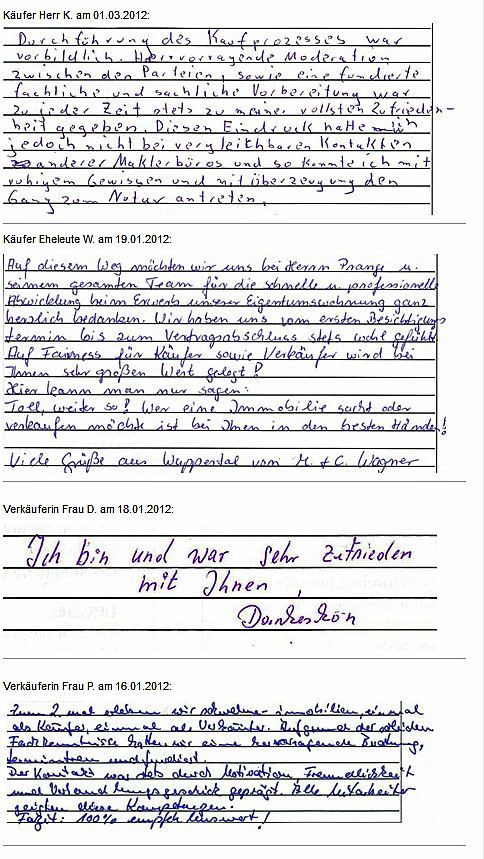 Käufer Herr K. am 01.03.2012:
Durchführung des Kaufprozesses war
vorbildlich. Hervorragende Moderation
zwischen den Parteien, sowie eine fundierte
fachliche und sachliche Vorbereitung war
zu jeder Zeit stets zu meiner vollsten Zufrieden-
heit gegeben. Diesen Eindruck hatte ich
jedoch nicht bei vergleichbaren Kontakten
anderer Maklerbüros und so konnte ich mit
ruhigem Gewissen und mit Überzeugung den
Gang zum Notar antreten.
Käufer Eheleute W. am 19.01.2012:
Auf diesem Weg möchten wir uns bei Herrn Prange u.
seinem gesamten Team für die schnelle u. professionelle
Abwicklung beim Erwerb unserer Eigentumswohnung ganz
herzlich bedanken. Wir haben uns vom ersten Besichtigungs
termin bis zum Vertragsabschluss stets wohl gefühlt.
Auf Fairness für Käufer sowie Verkäufer wird bei
Ihnen sehr großen Wert gelegt!
Hier kann man nur sagen:
Toll, weiter so! Wer eine Immobilie sucht oder
verkaufen möchte ist bei Ihnen in den besten Händen!
Viele Grüße aus Wuppertal von M. + C. Wagner
Verkäuferin Frau D. am 18.01.2012:
Ich bin und war sehr zufrieden
mit Ihnen,
Dankeschön
Verkäuferin Frau P. am 16.01.2012:
Zum 2. mal erleben wir immobilien, einmal
als Käufer, einmal als Verkäufer. Aufgrund der soliden
Fachkenntnisse hatten wir eine hervorragende Beratung,
und fundiert.
Der Kontakt war stets durch Motivation, Freundlichkeit
und Verhandlungsgeschick geprägt. Alle Mitarbeiter
zeigten diese Kompetenzen.
Fazit: 100% empfehlenswert!